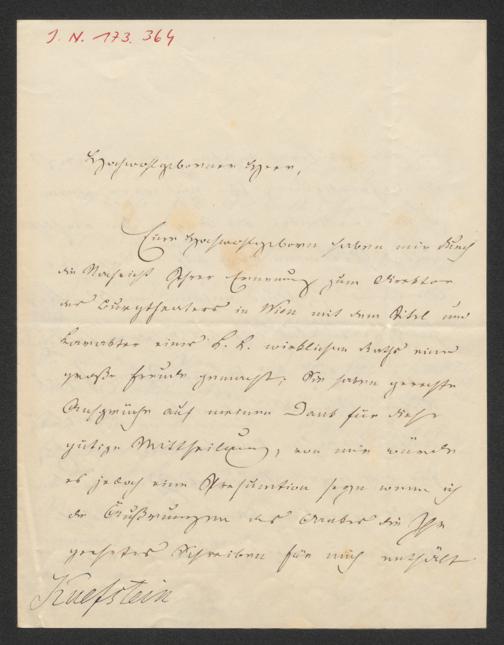 J. N. 173.364
Hochwohlgeborner Herr,
Euer Hochwohlgeborn haben mir durch
die Nachricht Ihrer Ernennung zum Direktor
des Burgtheaters in Wien mit dem Titel und
Karakter eines k. k. wirklichen Raths eine
große Freude gemacht; Sie haben gerechte
Ansprüche auf meinen Dank für diese
gütige Mittheilung, von mir würde
es jedoch eine Presumtion seyn wenn ich
die Äußerungen des Dankes die Ihr
geehrtes Schreiben für mich enthält
Kuefstein